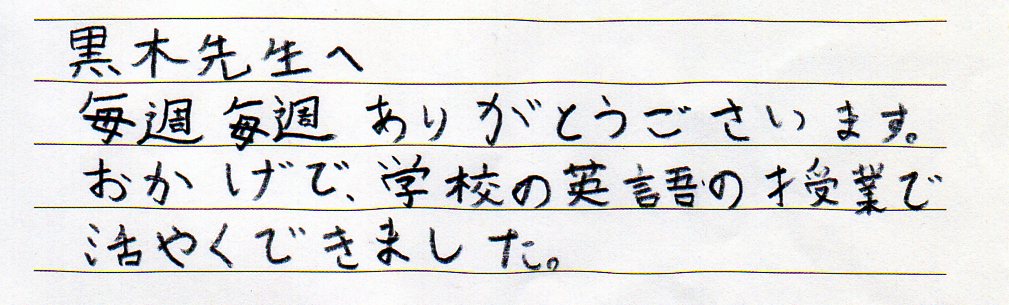 黒木先生へ
毎週毎週ありがとうございます。
おかげで、学校の英語の授業で
活やくできました。